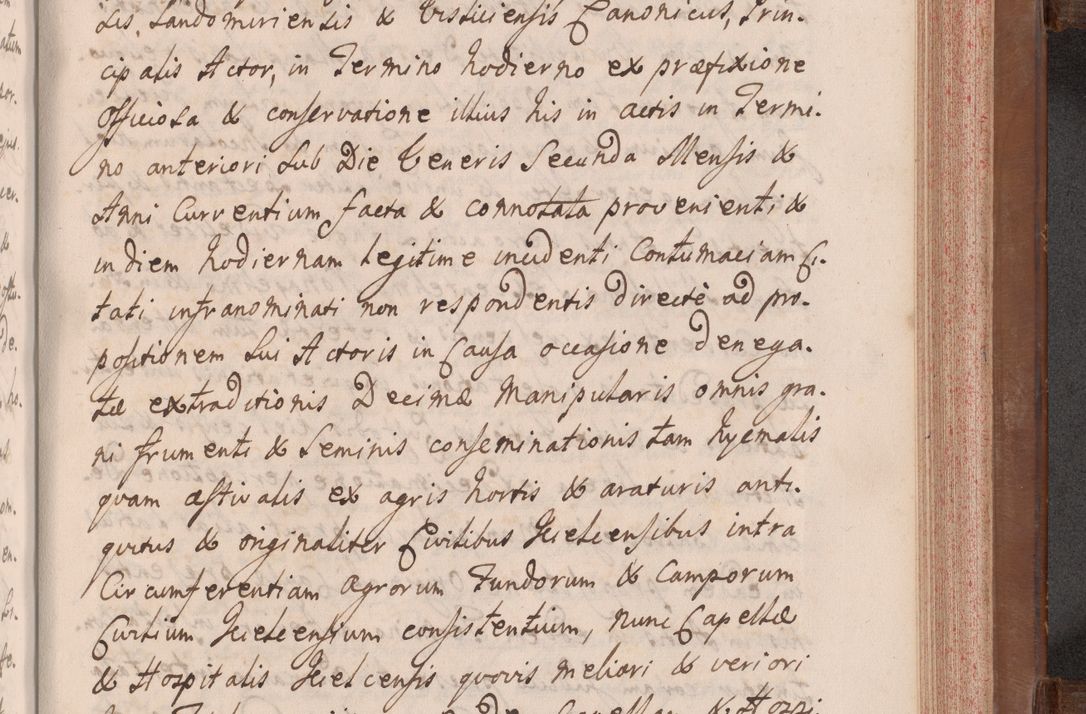 sis, Sandomiriensis & Visliciensis Canonicus, Prin-
cipalis Actor, in Termino hodierno ex præfixione
Officiosa & conservatione illius his in actis in Termi-
no anteriori sub Die Veneris Secunda Mensis &
Anni Currentium facta & connotata provenienti &
in diem hodiernam legitime incidenti Contumaciam Ci-
tati infranominati non respondentis directè ad pro-
positionem sui Actoris in Causa occasione denega-
tæ extraditionis Decimæ Manipularis omnis gra-
ni frumenti & Seminis conseminationis tam hyemalis
quam æstivalis ex agris hortis & araturis anti-
quitus & originaliter Civilibus Kielcensibus intra
Circumferentiam agrorum Fundorum & Camporum
Civilium Kielcensium consistentium, nunc Capellæ
& Hospitalis Kielcensis quovis meliori & veriori